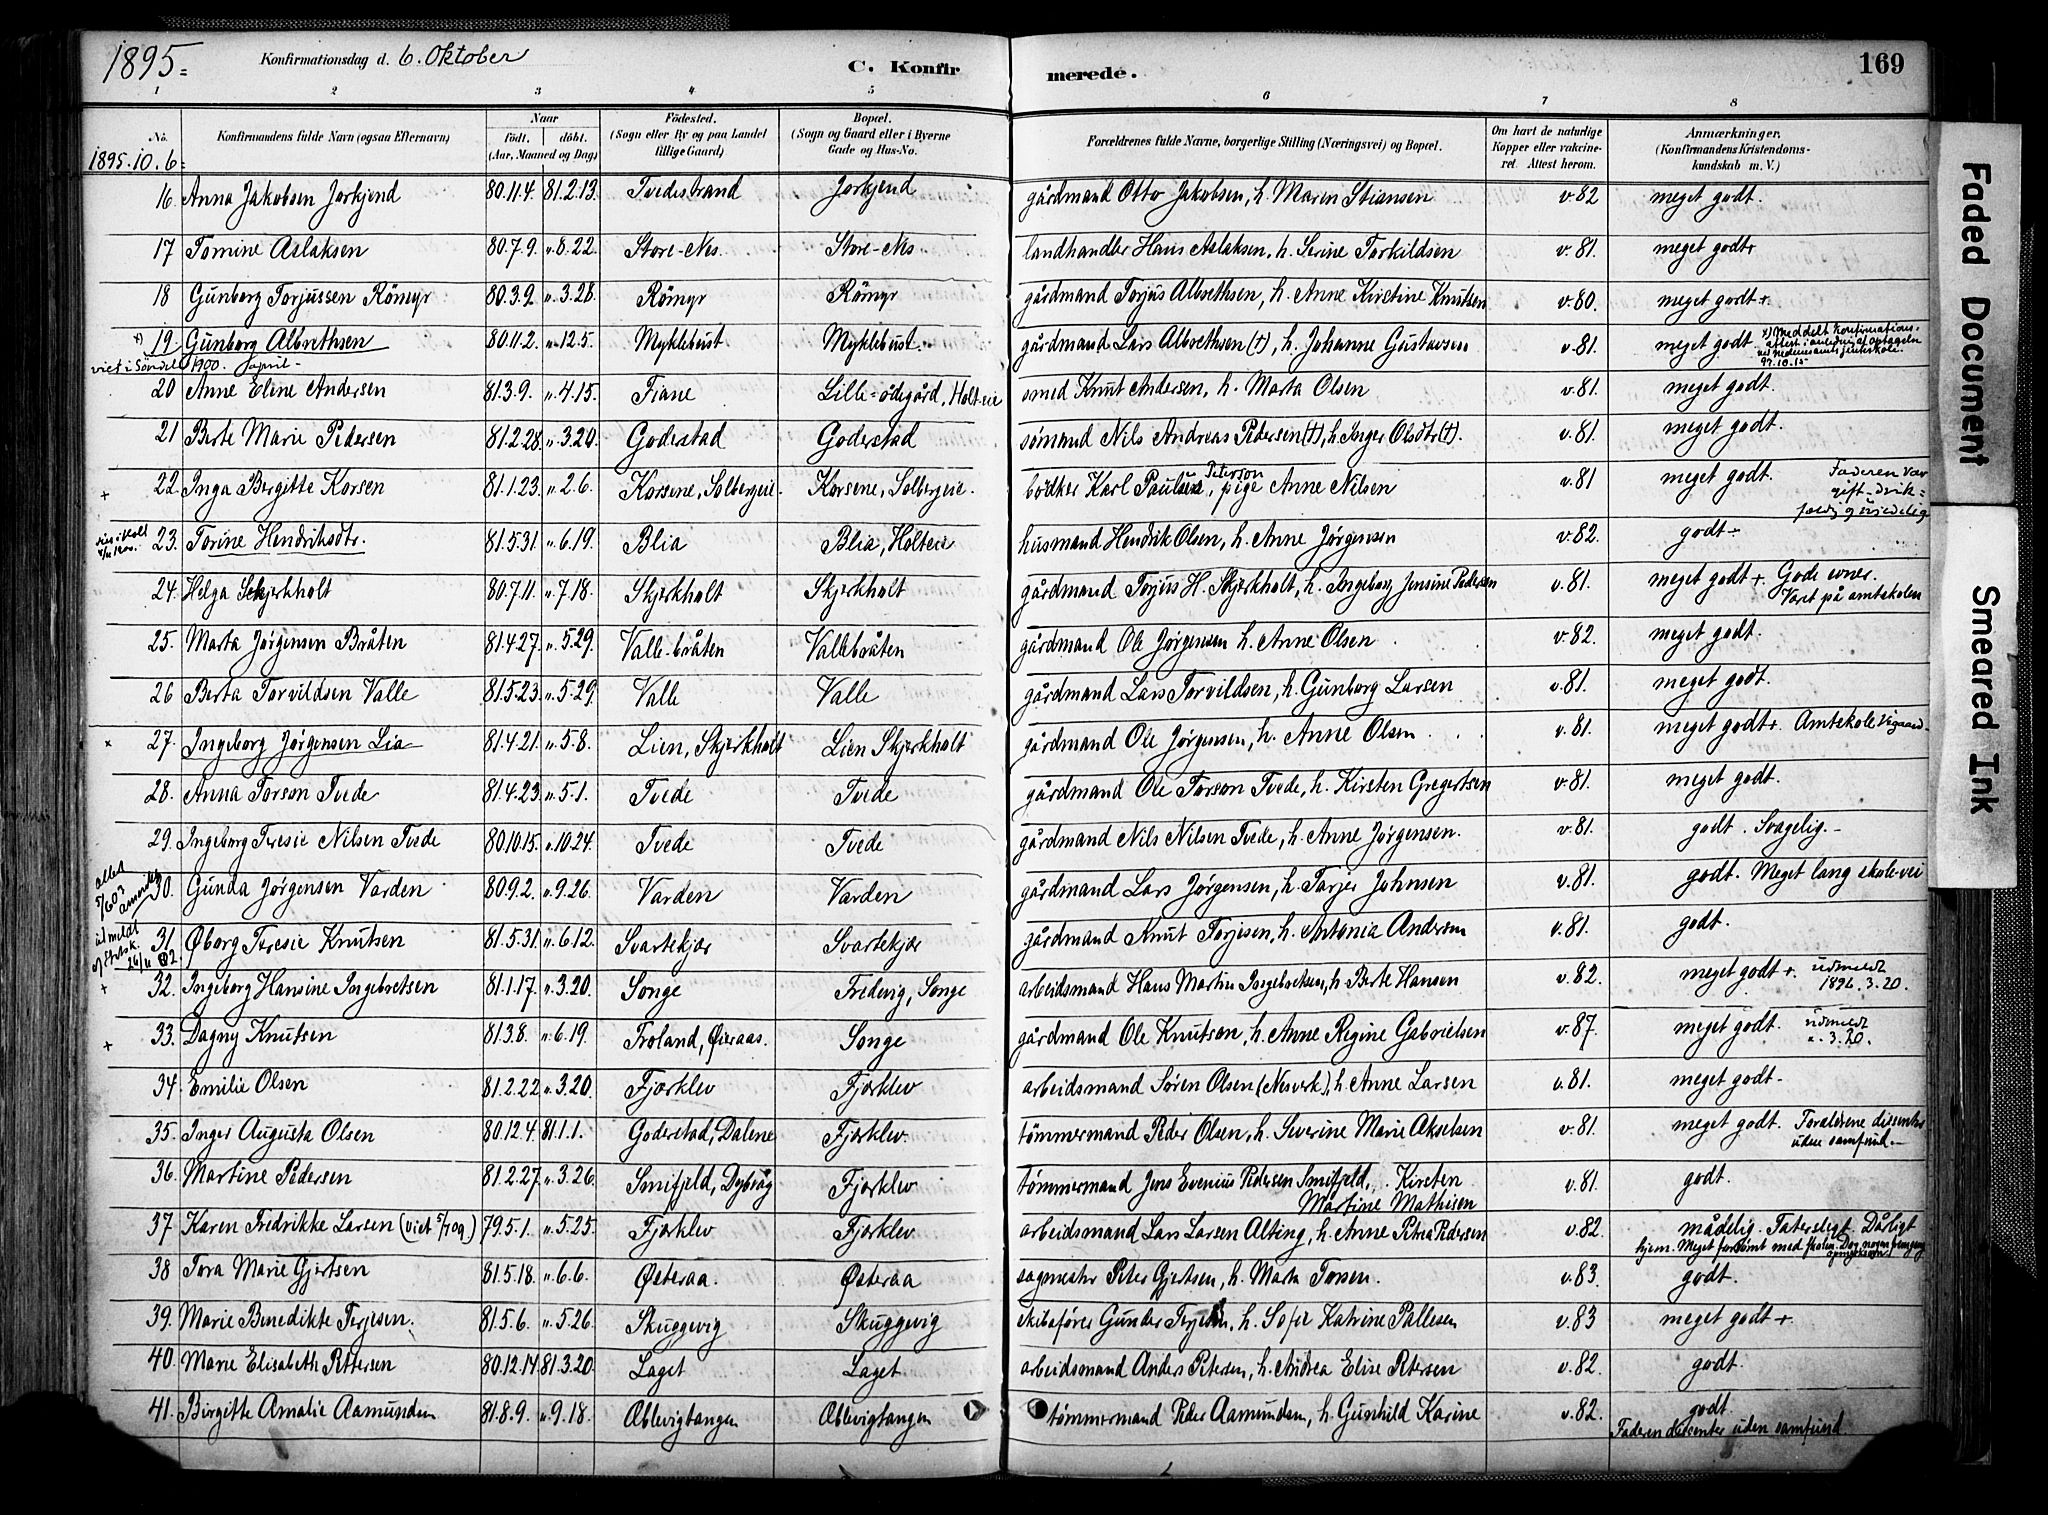 1895.
Konfirmationsdag d. 6. Oktober
C. Konfirmerede.
169
1 2 3 4 5 6 7 8
No.
Konfirmandens fulde Navn (ogsaa Efternavn)
Naar
født. døbt.
(Aar, Maaned og Dag)
Fødested.
(Sogn eller By og paa Landet tillige Gaard)
Bopæl.
(Sogn og Gaard eller i Byerne Gade og Hus-No.
Forældrenes fulde Navne, borgerlige Stilling (Næringsvei) og Bopæl.
Om havt de naturlige Kopper eller vaccineret. Attest herom.
Anmærkninger.
(Konfirmandens Kristendomskundskab m. V.)
1895.10.6
16 Anna Jakobsen Jorkjend 80.11.4. 81.2.13. Tvedestrand Jorkjend gårdmand Otto Jakobsen, h. Maren Stiansen v.82 meget godt.
17 Tomine Aslaksen 80.7.9. „8.22. Store-Nes. Store-Nes landhandler Hans Aslaksen, h. Serine Torkildsen v.81. meget godt+
18 Gunborg Torjussen Römyr 80.3.9. „.3.28. Römyr Römyr gårdmand Torjus Albrethsen, h. Anne Kirstine Knutsen v.80. meget godt+.
x) 19 Gunborg Albrethsen 80.11.2. „12.5. Myklebust Myklebust. gårdmand Lars Albrethsen (†), h. Johanne Gustavsen v.81 meget godt x) Meddelt konfirmations-attest i anledn. af optagelse ved Nedenes amts pikeskole. 97.10.15
viet i Søndel 1900. April-
20 Anne Eline Andersen 81.3.9. „.4.15. Fiane Lille-ødegård, Holt-eie smed Knut Andersen, h. Marta Olsen v.81. meget godt.
21 Berte Marie Pedersen 81.2.28. „.3.20. Goderstad Goderstad sømand Nils Andreas Pedersen (†), h. Inger Olsdtr (†). v.81 meget godt.
+ 22. Inga Bergitte Korsen 81.1.23. „2.6. Korsene, Solbergeie. Korsene, Solbergeie. bødker Karl Paulsen Peterson, pige Anne Nilsen v.81 meget godt. Faderen var gift-drikfældig
23. Torine Hendriksdtr. 81.5.31 „.6.19. Blia Blia, Holteie husmand Hendrik Olsen, h. Anne Jørgensen v.82. godt-
24. Helga Skjerkholt 80.7.11. „.7.18. Skjerkholt Skjerkholt gårdmand Torjus H. Skjerkholt, h. Ingeborg Jensine Pedersen v.81. meget godt+. Gode evner. Været på amtskolen
25. Marta Jørgensen Bråten 81.4.27. „.5.29. Valle-bråten Vallebråten gårdmand Ole Jørgensen h. Anne Olsen v.82. meget godt.
26 Berta Torvildsen Valle 81.5.23. „.5.29. Valle Valle gårdmand Lars Torvildsen, h. Gunborg Larsen v.81. meget godt.
x 27. Ingeborg Jørgensen Lia 81.4.21. „.5.8. Lien, Skjerkholt Lien Skjerkholt gårdmand Ole Jørgensen, h. Anne Olsen v.81. meget godt+. Amtskole
28. Anna Torson Tvede 81.4.23. „.5.1. Tvede Tvede gårdmand Ole Torson Tvede, h. Kirsten Gregertsen v.81. meget godt.
29. Ingeborg Teresie Nilsen Tvede 80.10.15. „.10.24. Tvede Tvede gårdmand Nils Nilsen Tvede, h. Anne Jørgensen. v.81. godt. Svagelig.-
30. Gunda Jørgensen Varden 80.9.2. „.9.26. Varden Varden gårdmand Lars Jørgensen, h. Tarjer Johnsen v.81. godt. Meget lang skole-vei
31. Øborg Teresie Knutsen 81.5.31 „.6.12. Svartekjær Svartekjær gårdmand Knut Torjesen, h. Antonia Andersen v.81. godt.
+ 32. Ingeborg Hansine Ingebretsen 81.1.17. „.3.20. Songe Fredvig, Songe arbeidsmand Hans Martin Ingebretsen, h. Berte Hansen v.82. meget godt+. udmeldt 1896.3.20.
+ 33. Dagny Knutsen 81.3.8. „.6.19. Froland, Øieraas. Songe gårdmand Ole Knutson, h. Anne Regine Gabrielsen v.87. meget godt. udmeldt „.3.20.
34. Emilie Olsen 81.2.22 „.3.20. Fjærklev Fjærklev arbeidsmand Søren Olsen (Nesverk), h. Anne Larsen v.81. meget godt-
35. Inger Augusta Olsen 80.12.4. 81.1.1. Goderstad, Dalene Fjærklev. tømmermand Peder Olsen, h. Severine Marie Akselsen v.81 meget godt. Forældrene dissentre uden samfund.-
36. Martine Pedersen 81.2.27. „.3.26. Smifjeld, Dybvåg Fjærklev tømmermand Jens Evenius Pedersen Smifjeld, Kirsten Martine Mathisen v.81. godt.
37 Karen Fredrikke Larsen (viet 5/7 09) 79.5.1. „.5.25. Fjærklev Fjærklev arbeidsmand Lars Larsen Alting, h. Anne Petrea Pedersen v.82 mådelig. Taterslegt. Dårligt hjem. Meget forsømt med skolen.
38 Tora Marie Gjertsen 81.5.18. „.6.6. Østeraa. Østeraa sagmester Peter Gjertsen, h. Marta Torsen. v.83. godt.
39. Marie Benedikte Terjesen. 81.5.6. „.5.26. Skuggevig Skuggevig skibsfører Gunder Terjesen, h. Sofie Katrine Pallesen v.83 meget godt+.
40. Marie Elisabeth Pettersen 80.12.14 81.3.20. Laget Laget arbeidsmand Anders Petersen, h. Andrea Elise Petersen v.82. godt.
41. Birgitte Amalie Aamundsen 81.8.9. „.9.18. Ablevigtangen Ablevigtangen tømmermand Peder Aamundsen, h. Gunhild Karine v.82. godt. Faderen dissenter uden samfund
Faded Document
Smeared Ink